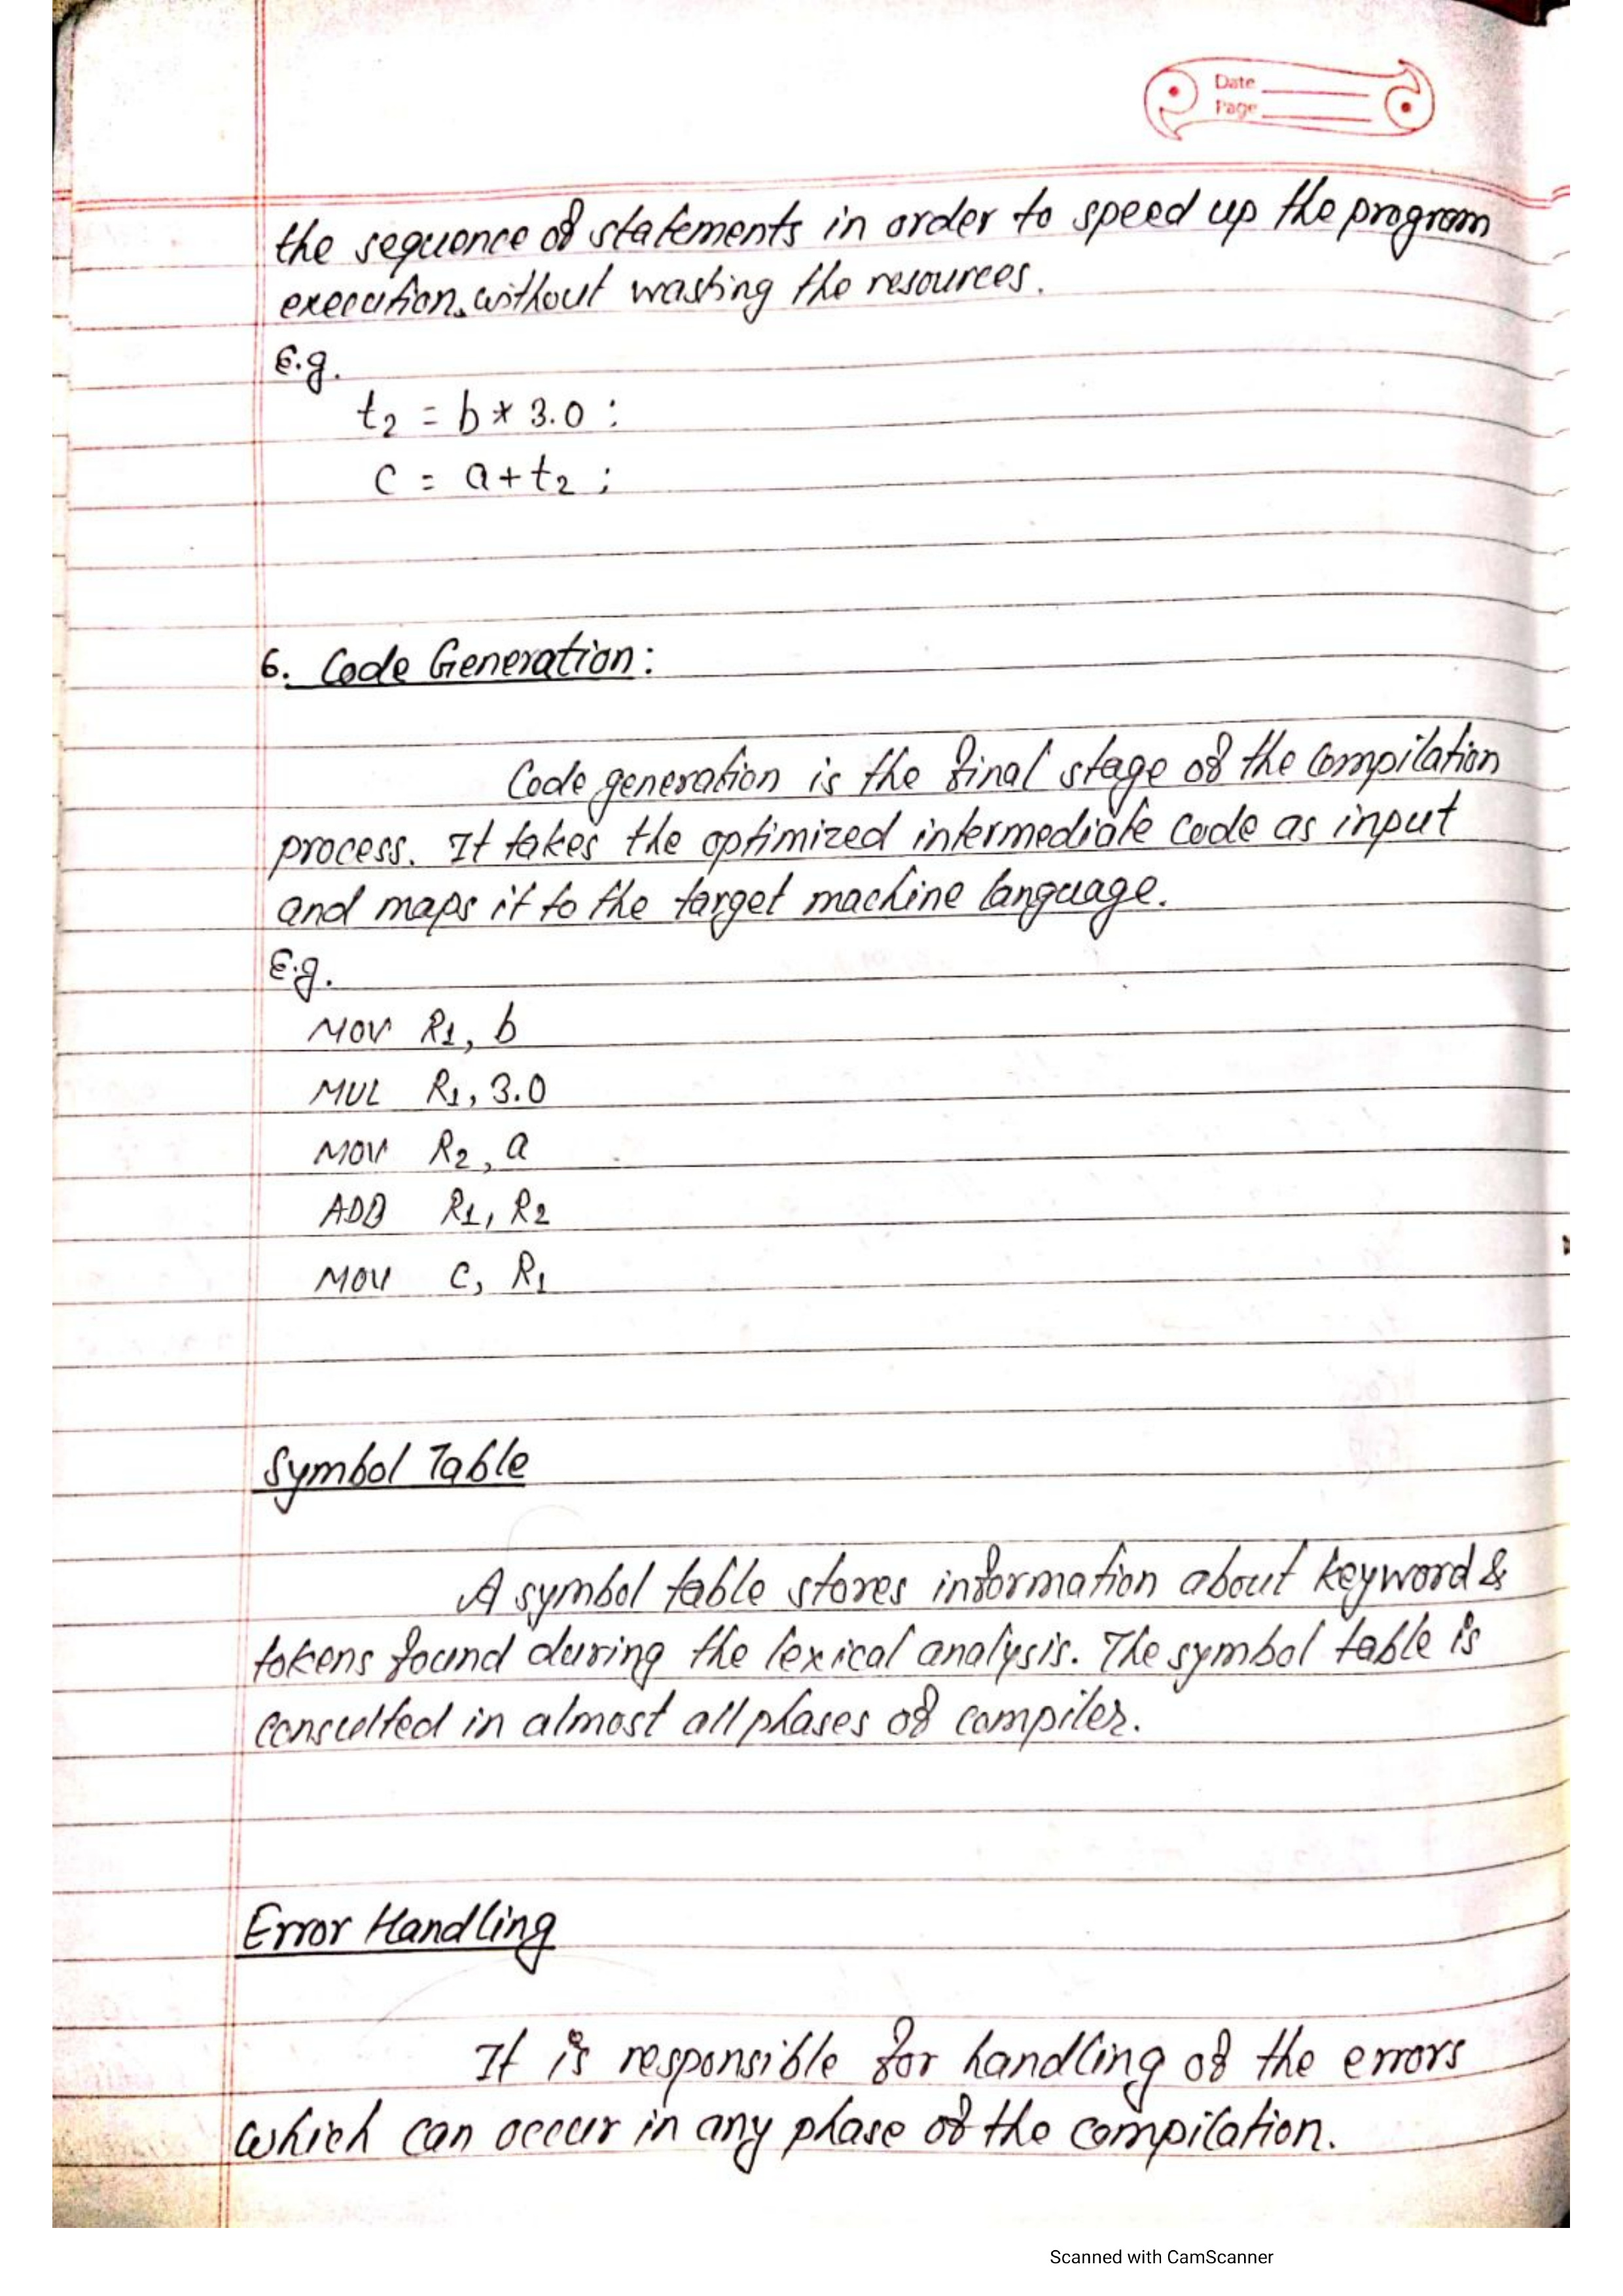 Date
Page
the sequence of statements in order to speed up the program
execution without wasting the resources.
E.g.
t2 = b * 3.0 :
c = a + t2 ;
6. Code Generation:
Code generation is the final stage of the compilation
process. It takes the optimized intermediate code as input
and maps it to the target machine language.
E.g.
MOV R1, b
MUL R1, 3.0
MOV R2, a
ADD R1, R2
MOV C, R1
Symbol Table
A symbol table stores information about keyword &
tokens found during the lexical analysis. The symbol table is
consulted in almost all phases of compiler.
Error Handling
It is responsible for handling of the errors
which can occur in any phase of the compilation.
Scanned with CamScanner